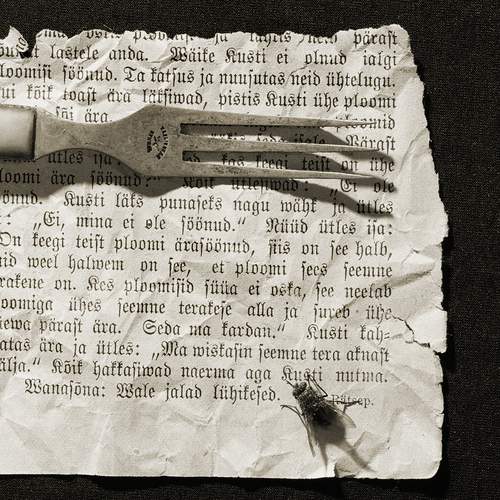 ma ostis ploomisid ja tahtis neid pärast
lastele anda. Wäike Kusti ei olnud ialgi
loomisi söönud. Ta katsus ja nuusutas neid ühtelugu.
ui kõik toast ära läksiwad, pistis Kusti ühe ploomi
söi ära.
ploomid
Pärast
ütles isa: kas keegi teist on ühe
loomi ära söönud?" Kõik ütlesiwad: „Ei ole
öönud. Kusti läks punaseks nagu wähk ja ütles
: „Ei, mina ei ole söönud." Nüüd ütles isa:
On keegi teist ploomi ärasöönud, siis on see halb,
id weel halwem on see, et ploomi sees seemne
rakene on. Kes ploomisid süüa ei oska, see neelab
oomiga ühes seemne terakese alla ja sureb ühe
äewa pärast ära. Seda ma kardan." Kusti kah=
atas ära ja ütles: „Ma wiskasin seemne tera aknast
älja." Kõik hakkasiwad naerma aga Kusti nutma.
Wanasõna: Wale jalad lühikesed.
Rätsep.